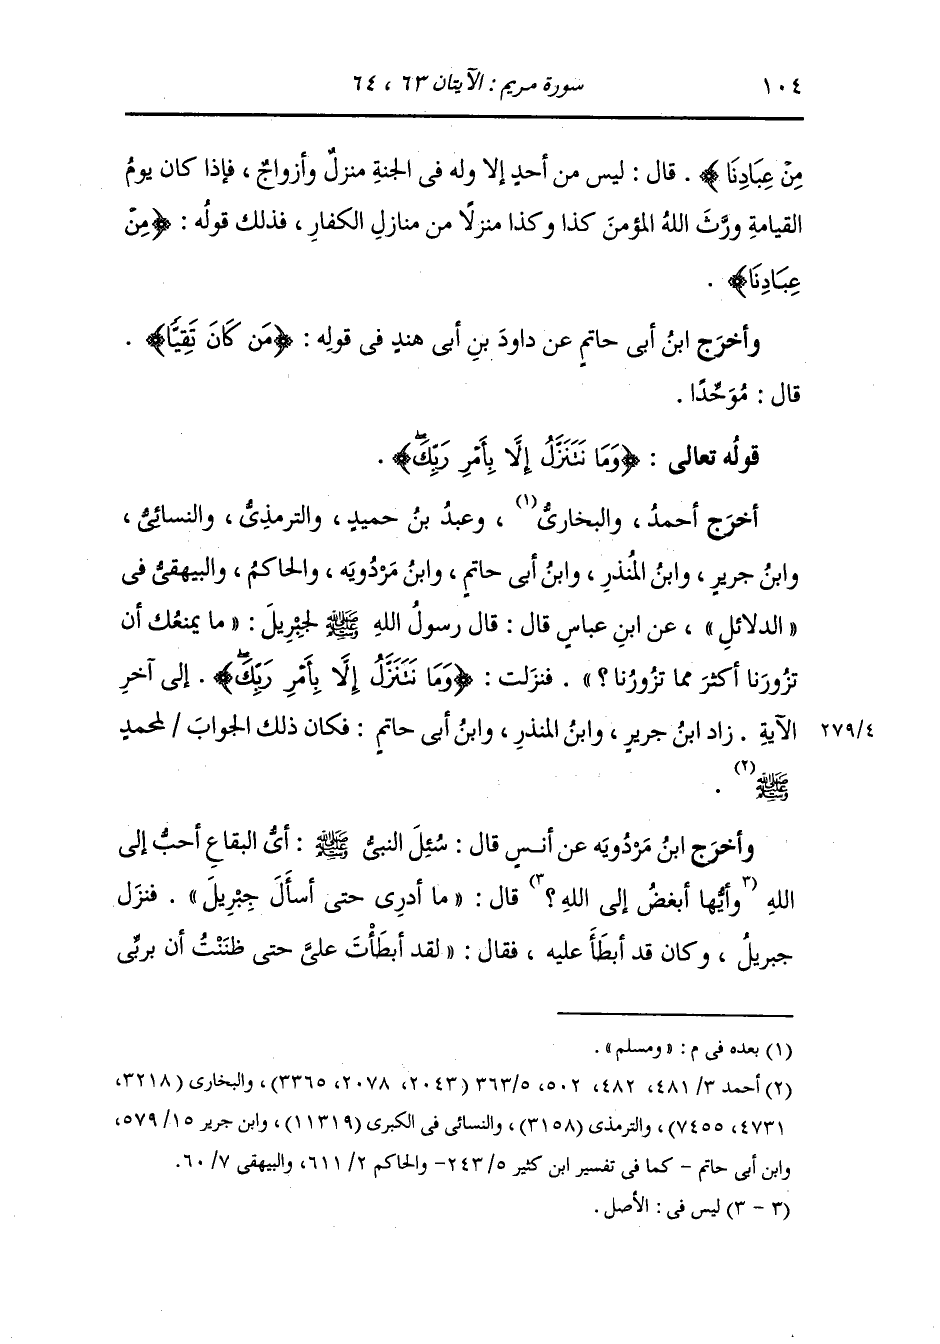 ١٠٤ سورة مريم : الآيتان ٦٣ ، ٦٤
مِنْ عِبَادِنَا﴾ . قال : ليس من أحدٍ إلا وله فى الجنةِ منزلٌ وأزواجٌ ، فإذا كان يومُ
القيامةِ ورَّثَ اللهُ المؤمنَ كذا وكذا منزلًا من منازلِ الكفارِ ، فذلك قولُه : ﴿مِنْ
عِبَادِنَا﴾ .
وأخرَج ابنُ أبى حاتمٍ عن داودَ بنِ أبى هندٍ فى قولِه : ﴿مَن كَانَ تَقِيًّا﴾ .
قال : مُوَحِّدًا .
قولُه تعالى : ﴿وَمَا نَتَنَزَّلُ إِلَّا بِأَمْرِ رَبِّكَۖ﴾ .
أخرَج أحمدُ ، والبخارىُّ(١) ، وعبدُ بنُ حميدٍ ، والترمذىُّ ، والنسائىُّ ،
وابنُ جريرٍ ، وابنُ المُنذرِ ، وابنُ أبى حاتمٍ ، وابنُ مَرْدُويَه ، والحاكمُ ، والبيهقىُّ فى
« الدلائلِ » ، عن ابنِ عباسٍ قال : قال رسولُ اللهِ ﷺ لجِبْرِيلَ : « ما يمنعُك أن
تزُورَنا أكثرَ مما تزُورُنا ؟ » . فنزَلت : ﴿وَمَا نَتَنَزَّلُ إِلَّا بِأَمْرِ رَبِّكَۖ﴾ . إلى آخرِ
٢٧٩/٤ الآيةِ . زاد ابنُ جريرٍ ، وابنُ المنذرِ ، وابنُ أبى حاتمٍ : فكان ذلك الجوابَ / لمحمدٍ
ﷺ(٢) .
وأخرَج ابنُ مَرْدُويَه عن أنسٍ قال : سُئِلَ النبىُّ ﷺ : أىُّ البقاعِ أحبُّ إلى
اللهِ (٣وأيُّها أبغضُ إلى اللهِ ؟٣) قال : « ما أدرِى حتى أسأَلَ جِبْرِيلَ » . فنزَل
جبريلُ ، وكان قد أبطَأَ عليه ، فقال : « لقد أبطَأْتَ علىَّ حتى ظنَنْتُ أن بربِّى
(١) بعده فى م : « ومسلم » .
(٢) أحمد ٣/ ٤٨١، ٤٨٢، ٥٠٢، ٥/ ٣٦٣ (٢٠٤٣، ٢٠٧٨، ٣٣٦٥)، والبخارى (٣٢١٨،
٤٧٣١، ٧٤٥٥)، والترمذى (٣١٥٨)، والنسائى فى الكبرى (١١٣١٩)، وابن جرير ١٥/ ٥٧٩،
وابن أبى حاتم - كما فى تفسير ابن كثير ٥/ ٢٤٣- والحاكم ٢/ ٦١١، والبيهقى ٧/ ٦٠.
(٣ - ٣) ليس فى : الأصل .